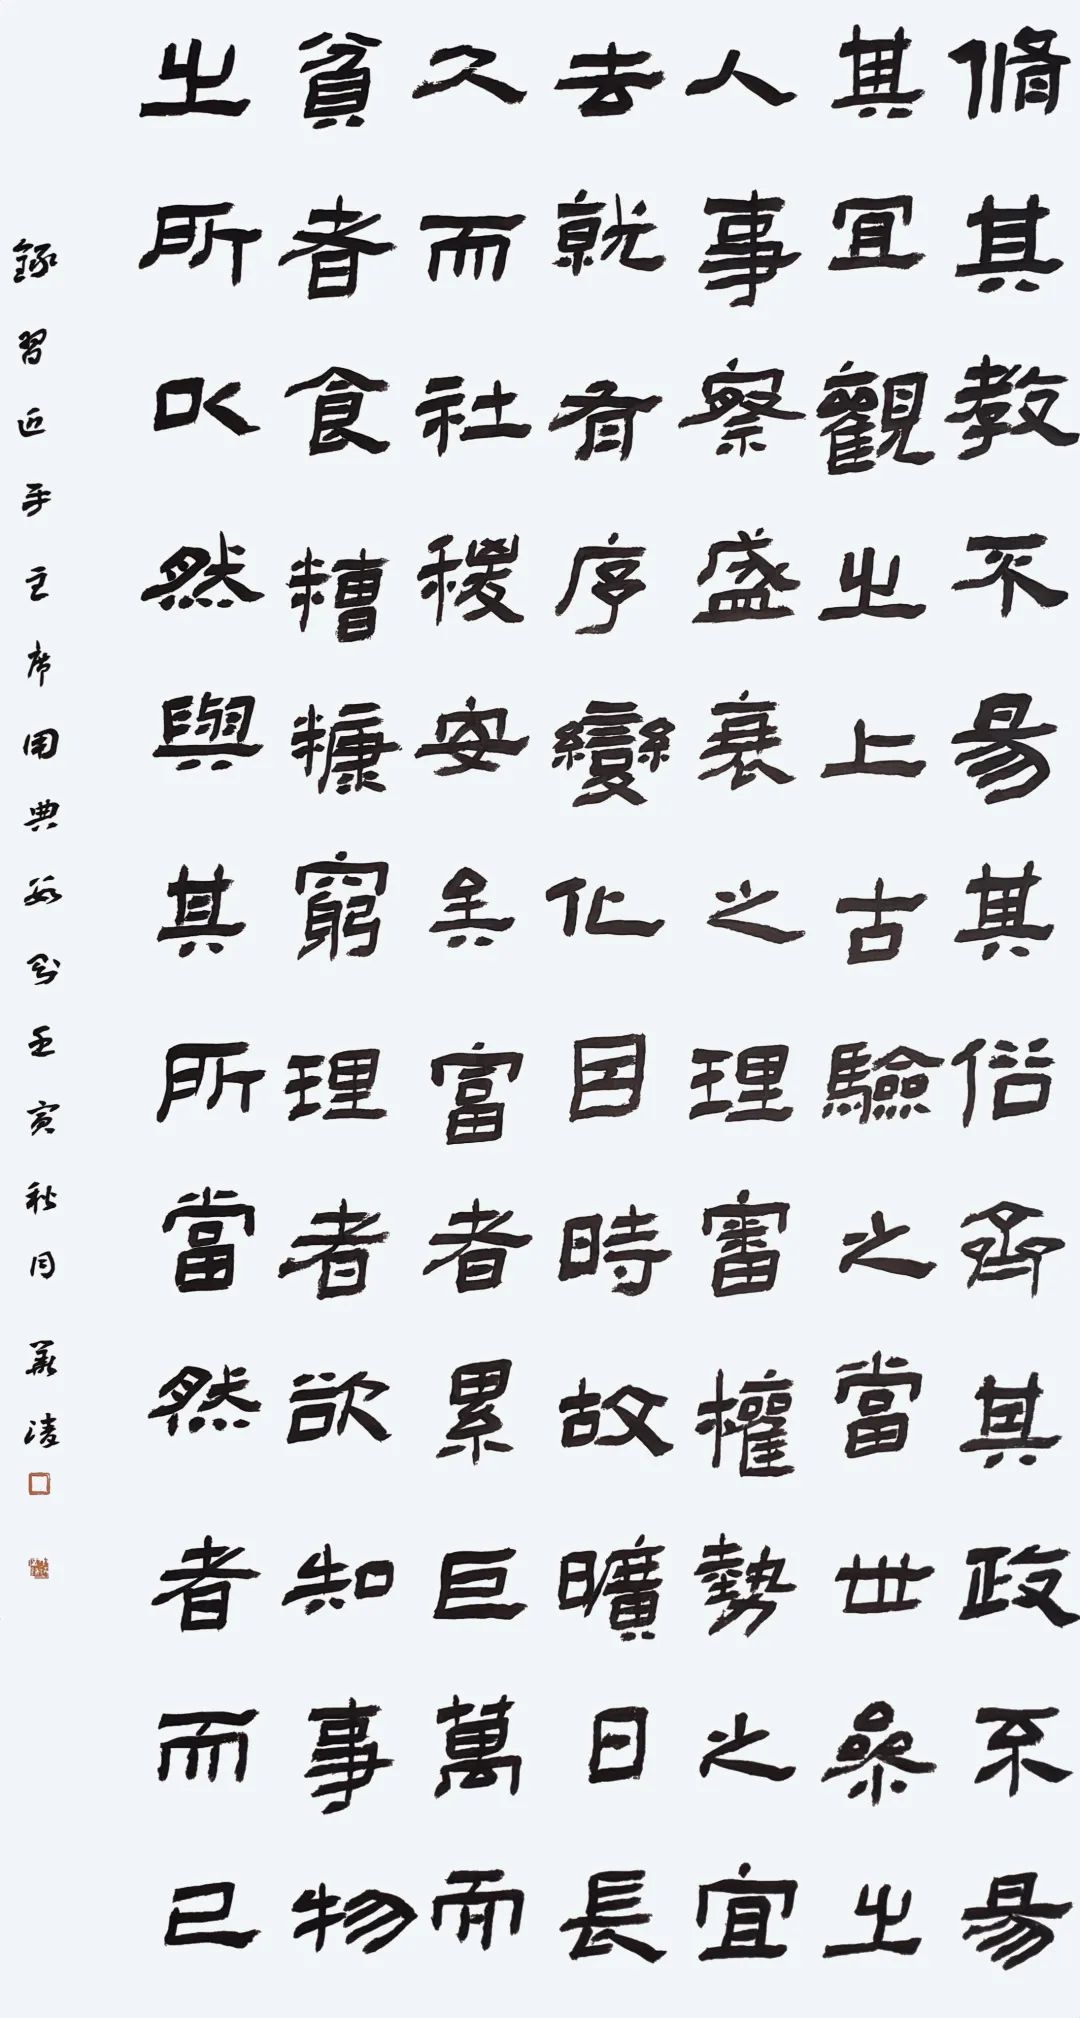 脩其教不易其俗齊其政不易
其宜觀之上古驗之當世參之
人事察盛衰之理審權勢之宜
去就有序變化因時故曠日長
久而社稷安矣富者累巨萬而
貧者食糟糠窮理者欲知事物
之所以然與其所當然者而已
錄習近平主席用典數則壬寅秋月